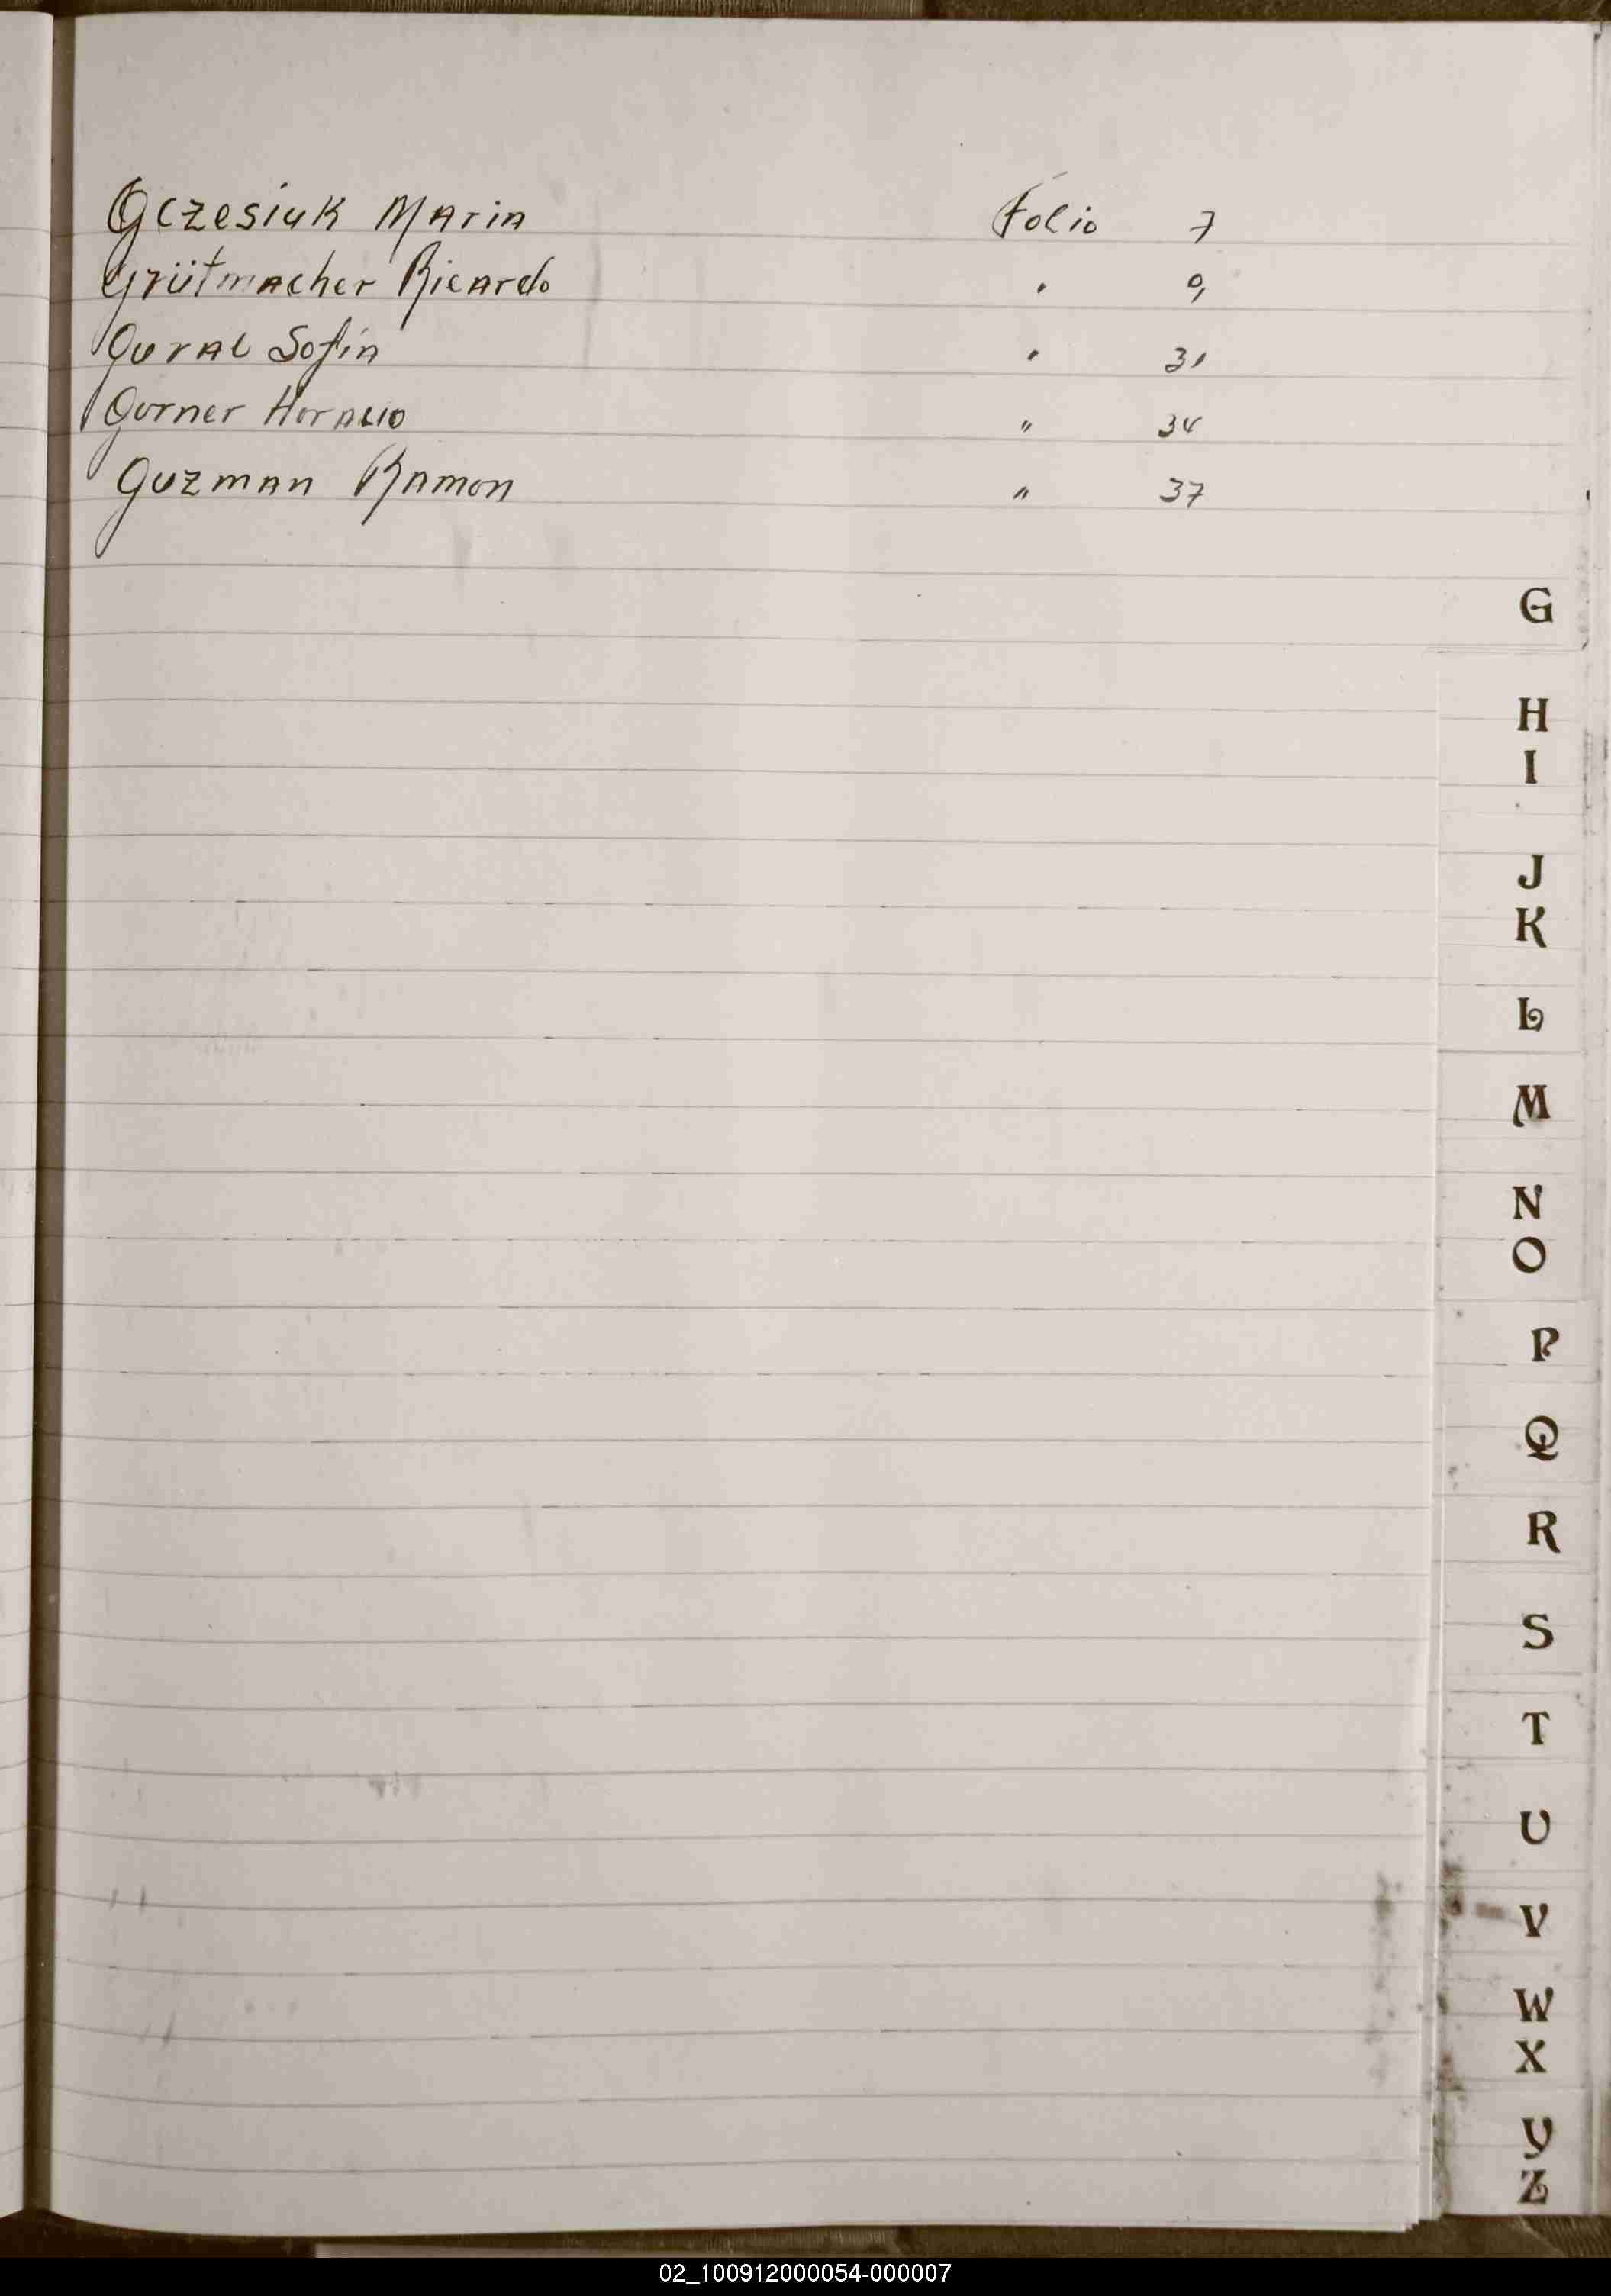 Gczesiuk Maria Folio 7
Grütmacher Ricardo " 9
Gural Sofia " 31
Gorner Horacio " 34
Guzman Ramon " 37
G
H
I
J
K
L
M
N
O
P
Q
R
S
T
U
V
W
X
Y
Z
02_100912000054-000007